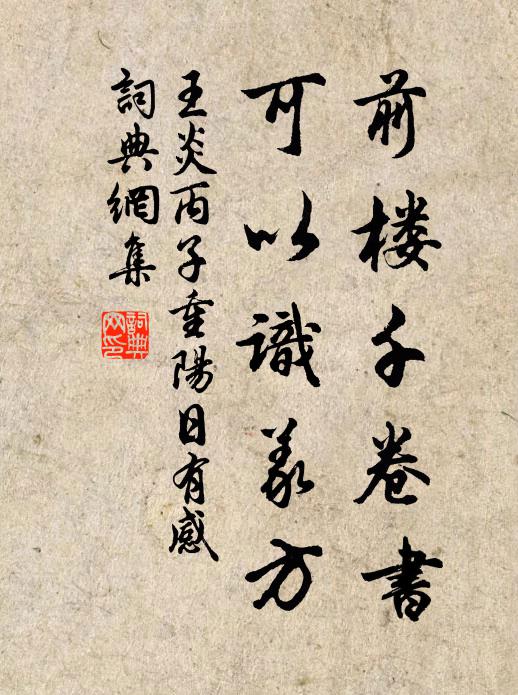 前楼千卷書
可以識义方
王炎丙子重陽日有感
詞典網集
詞典
网印